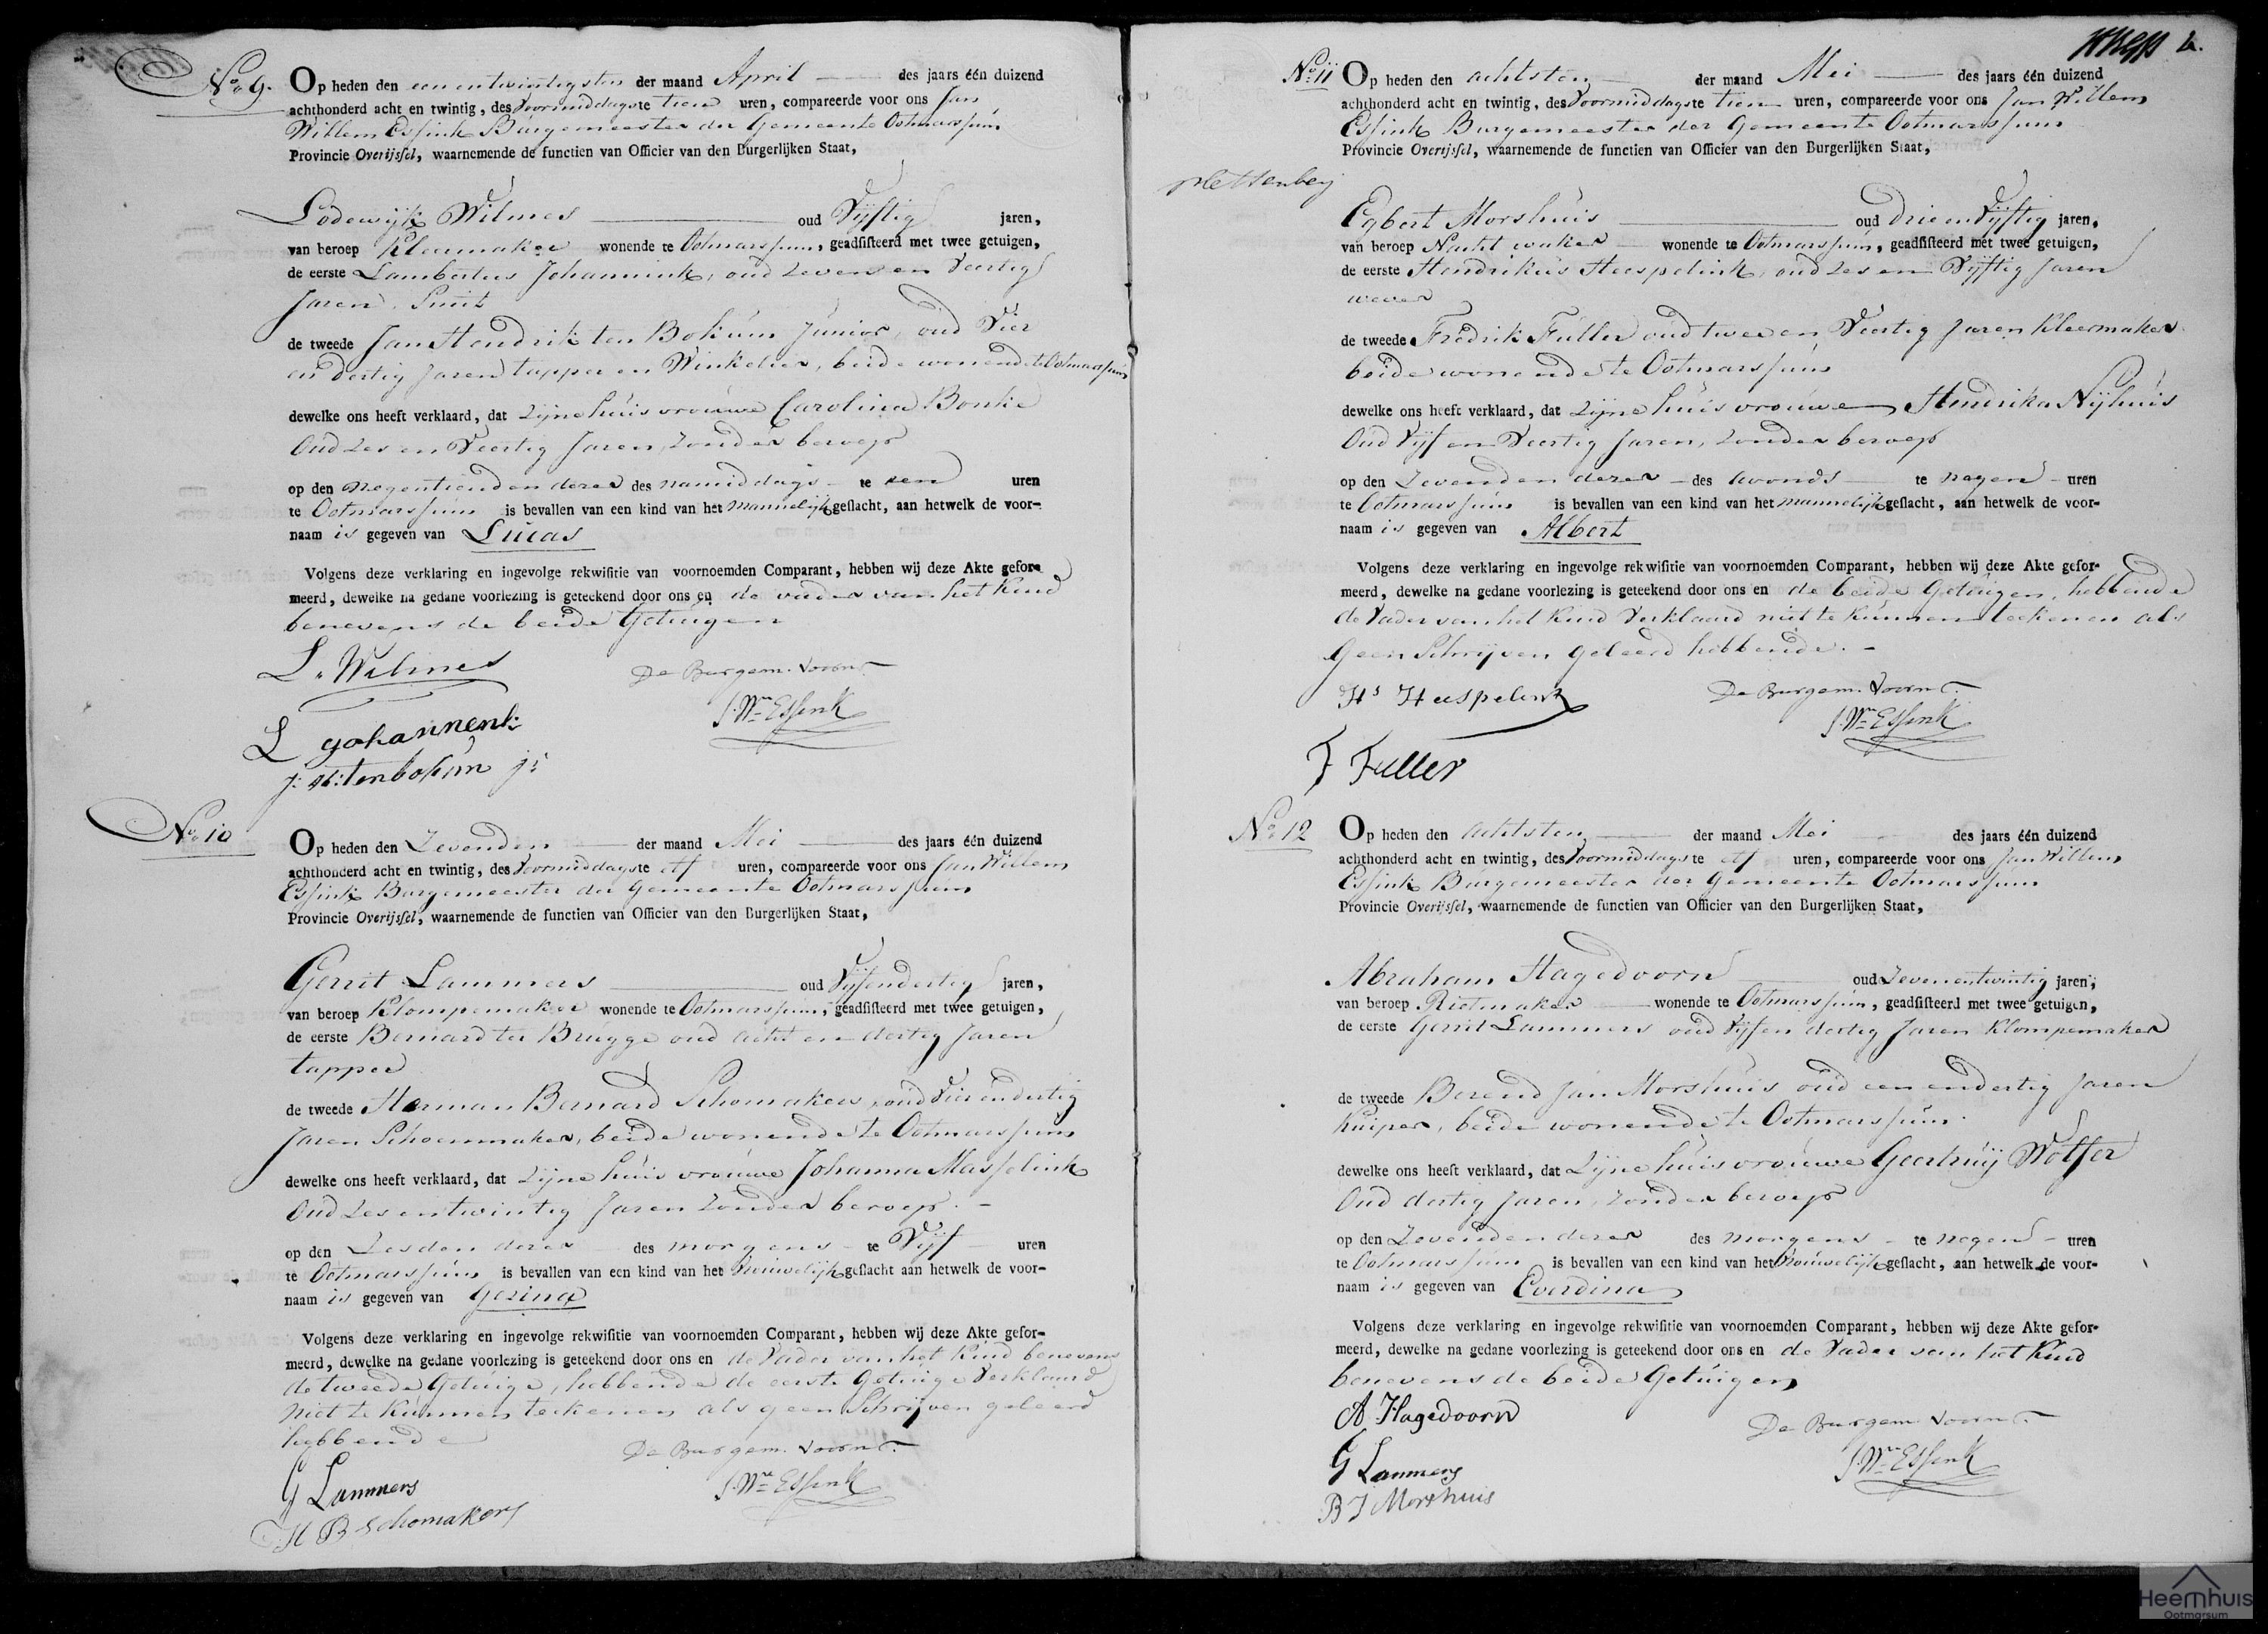 No. 9.
Op heden den een en twintigsten der maand April des jaars één duizend
achthonderd acht en twintig, des Voormiddags te tien uren, compareerde voor ons Jan
Willem Essink Burgemeester der Gemeente Ootmarssum
Provincie Overijssel, waarnemende de functien van Officier van den Burgerlijken Staat,
Lodewijk Wilmes oud Vijftig jaren,
van beroep Kleermaker wonende te Ootmarssum, geadsisteerd met twee getuigen,
de eerste Lambertus Johannink, oud Zeven en Veertig
Jaren, Smit
de tweede Jan Hendrik ten Bokum Junior, oud Vier
en dertig Jaren tapper en Winkelier, beide wonende te Ootmarssum
dewelke ons heeft verklaard, dat Zijne huisvrouwe Carolina Bonke
Oud Zes en Veertig Jaren, zonder beroep
op den negentienden dezer des namiddags te een uren
te Ootmarssum is bevallen van een kind van het mannelijk geslacht, aan hetwelk de voor-
naam is gegeven van Lucas
Volgens deze verklaring en ingevolge rekwisitie van voornoemden Comparant, hebben wij deze Akte gefor-
meerd, dewelke na gedane voorlezing is geteekend door ons en de vader van het Kind
benevens de beide Getuigen
L. Wilmes
De Burgem. Voornt.
J. Wm Essink
L Johannenk
J: H: tenbokum jr
No. 10
Op heden den Zevenden der maand Mei des jaars één duizend
achthonderd acht en twintig, des Voormiddags te elf uren, compareerde voor ons Jan Willem
Essink Burgemeester der Gemeente Ootmarssum
Provincie Overijssel, waarnemende de functien van Officier van den Burgerlijken Staat,
Gerrit Lammers oud Vijfendertig jaren,
van beroep Klompemaker wonende te Ootmarssum, geadsisteerd met twee getuigen,
de eerste Bernard ter Brugge oud acht en dertig Jaren
tapper
de tweede Herman Bernard Schomakers, oud Vier en dertig
Jaren Schoenmaker, beide wonende te Ootmarssum
dewelke ons heeft verklaard, dat Zijne huisvrouwe Johanna Masselink
Oud Zes en twintig Jaren zonder beroep. -
op den Zesden dezer des morgens te Vijf uren
te Ootmarssum is bevallen van een kind van het Vrouwelijk geslacht aan hetwelk de voor-
naam is gegeven van Gezina
Volgens deze verklaring en ingevolge rekwisitie van voornoemden Comparant, hebben wij deze Akte gefor-
meerd, dewelke na gedane voorlezing is geteekend door ons en de Vader van het Kind benevens
de tweede Getuige, hebbende de eerste Getuige Verklaard
niet te kunnen teekenen als geen Schrijven geleerd
hebbende
De Burgem. Voornt.
J. Wm Essink
G Lammers
H B Schomakers
No. 11
Op heden den achtsten der maand Mei des jaars één duizend
achthonderd acht en twintig, des Voormiddags te tien uren, compareerde voor ons Jan Willem
Essink Burgemeester der Gemeente Ootmarssum
Provincie Overijssel, waarnemende de functien van Officier van den Burgerlijken Staat,
Egbert Morshuis oud Drie en Vijftig jaren,
van beroep Nacht waker wonende te Ootmarssum, geadsisteerd met twee getuigen,
de eerste Hendrikus Heespelink, oud Zes en Vijftig Jaren
wever
de tweede Fredrik Fuller oud twee en Veertig Jaren Kleermaker
beide wonende te Ootmarssum
dewelke ons heeft verklaard, dat Zijne huisvrouwe Hendrika Nijhuis
Oud Vijf en Veertig Jaren, zonder beroep
op den Zevenden dezer des avonds te negen uren
te Ootmarssum is bevallen van een kind van het mannelijk geslacht, aan hetwelk de voor-
naam is gegeven van Albert
Volgens deze verklaring en ingevolge rekwisitie van voornoemden Comparant, hebben wij deze Akte gefor-
meerd, dewelke na gedane voorlezing is geteekend door ons en de beide Getuigen, hebbende
de Vader van het Kind Verklaard niet te kunnen teekenen als
Geen Schrijven geleerd hebbende. -
Hs Heespelink
De Burgem. Voornt.
J. Wm Essink
F Fuller
No. 12
Op heden den achtsten der maand Mei des jaars één duizend
achthonderd acht en twintig, des Voormiddags te elf uren, compareerde voor ons Jan Willem
Essink Burgemeester der Gemeente Ootmarssum
Provincie Overijssel, waarnemende de functien van Officier van den Burgerlijken Staat,
Abraham Hagedoorn oud Zevenentwintig jaren,
van beroep Rietmaker wonende te Ootmarssum, geadsisteerd met twee getuigen,
de eerste Gerrit Lammers oud Vijf en dertig Jaren Klompemaker
de tweede Berend Jan Morshuis oud een en dertig Jaren
Kuiper, beide wonende te Ootmarssum.
dewelke ons heeft verklaard, dat Zijne huisvrouwe Geertruij Wolfer
Oud dertig Jaren, zonder beroep
op den Zevenden dezer des morgens te negen uren
te Ootmarssum is bevallen van een kind van het Vrouwelijk geslacht, aan hetwelk de voor-
naam is gegeven van Everdina
Volgens deze verklaring en ingevolge rekwisitie van voornoemden Comparant, hebben wij deze Akte gefor-
meerd, dewelke na gedane voorlezing is geteekend door ons en de Vader van het Kind
benevens de beide Getuigen
A Hagedoorn
De Burgem. Voornt.
J. Wm Essink
G Lammers
B J Morshuis
Heemhuis
Ootmarsum